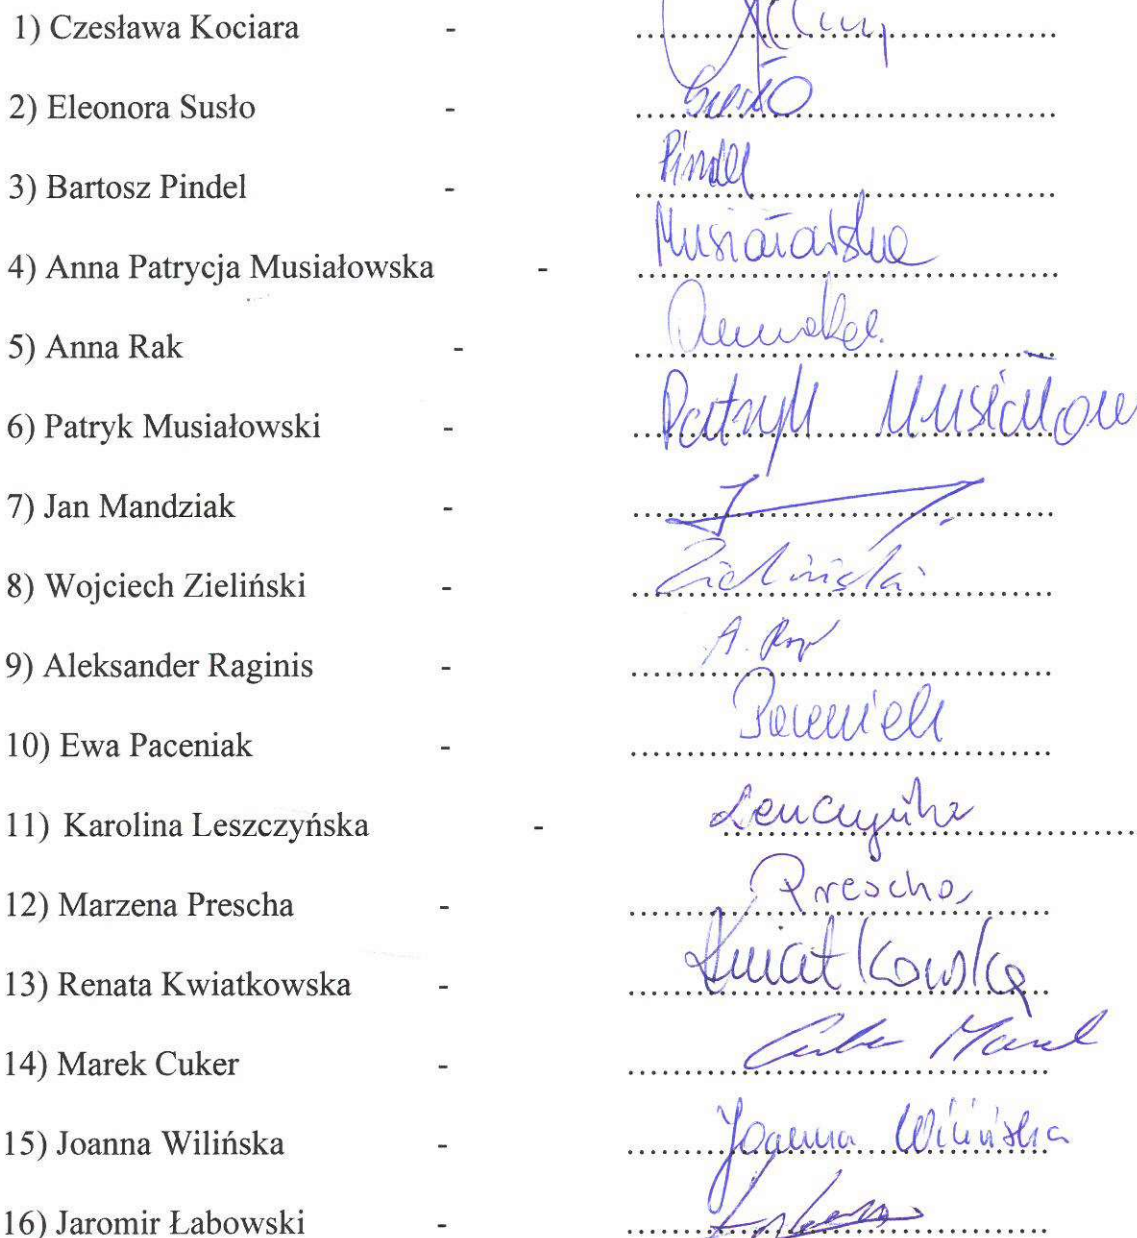 1) Czesława Kociara -
2) Eleonora Susło - Susło
3) Bartosz Pindel - Pindel
4) Anna Patrycja Musiałowska - Musiałowska
5) Anna Rak -
6) Patryk Musiałowski - Patryk Musiałow
7) Jan Mandziak -
8) Wojciech Zieliński - Zieliński
9) Aleksander Raginis - A.
10) Ewa Paceniak -
11) Karolina Leszczyńska -
12) Marzena Prescha - Prescha
13) Renata Kwiatkowska - Kwiatkowska
14) Marek Cuker - Cuker Marek
15) Joanna Wilińska - Joanna Wilińska
16) Jaromir Łabowski -